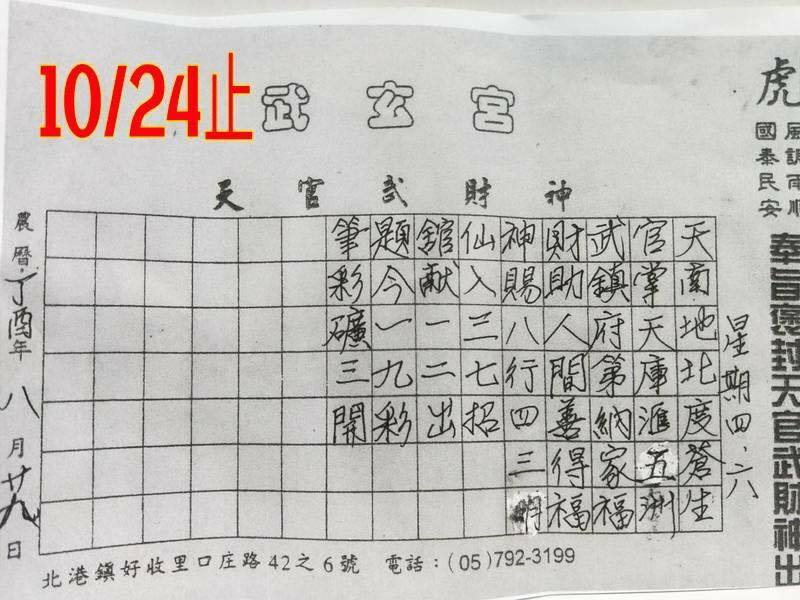 10/24止
武玄宮
天官武財神
虎
風調雨順
國泰民安
奉旨褒封天官武財神出
星期四.六
天南地北度蒼生
官掌天庫滙五洲
武鎮府第納家福
財助人間善得福
神賜八行四三
仙入三七招
館献一二出
題今一九彩
筆彩礦三開
農曆.丁酉年八月廿九日
北港鎮好收里口庄路42之6號 電話:(05)792-3199